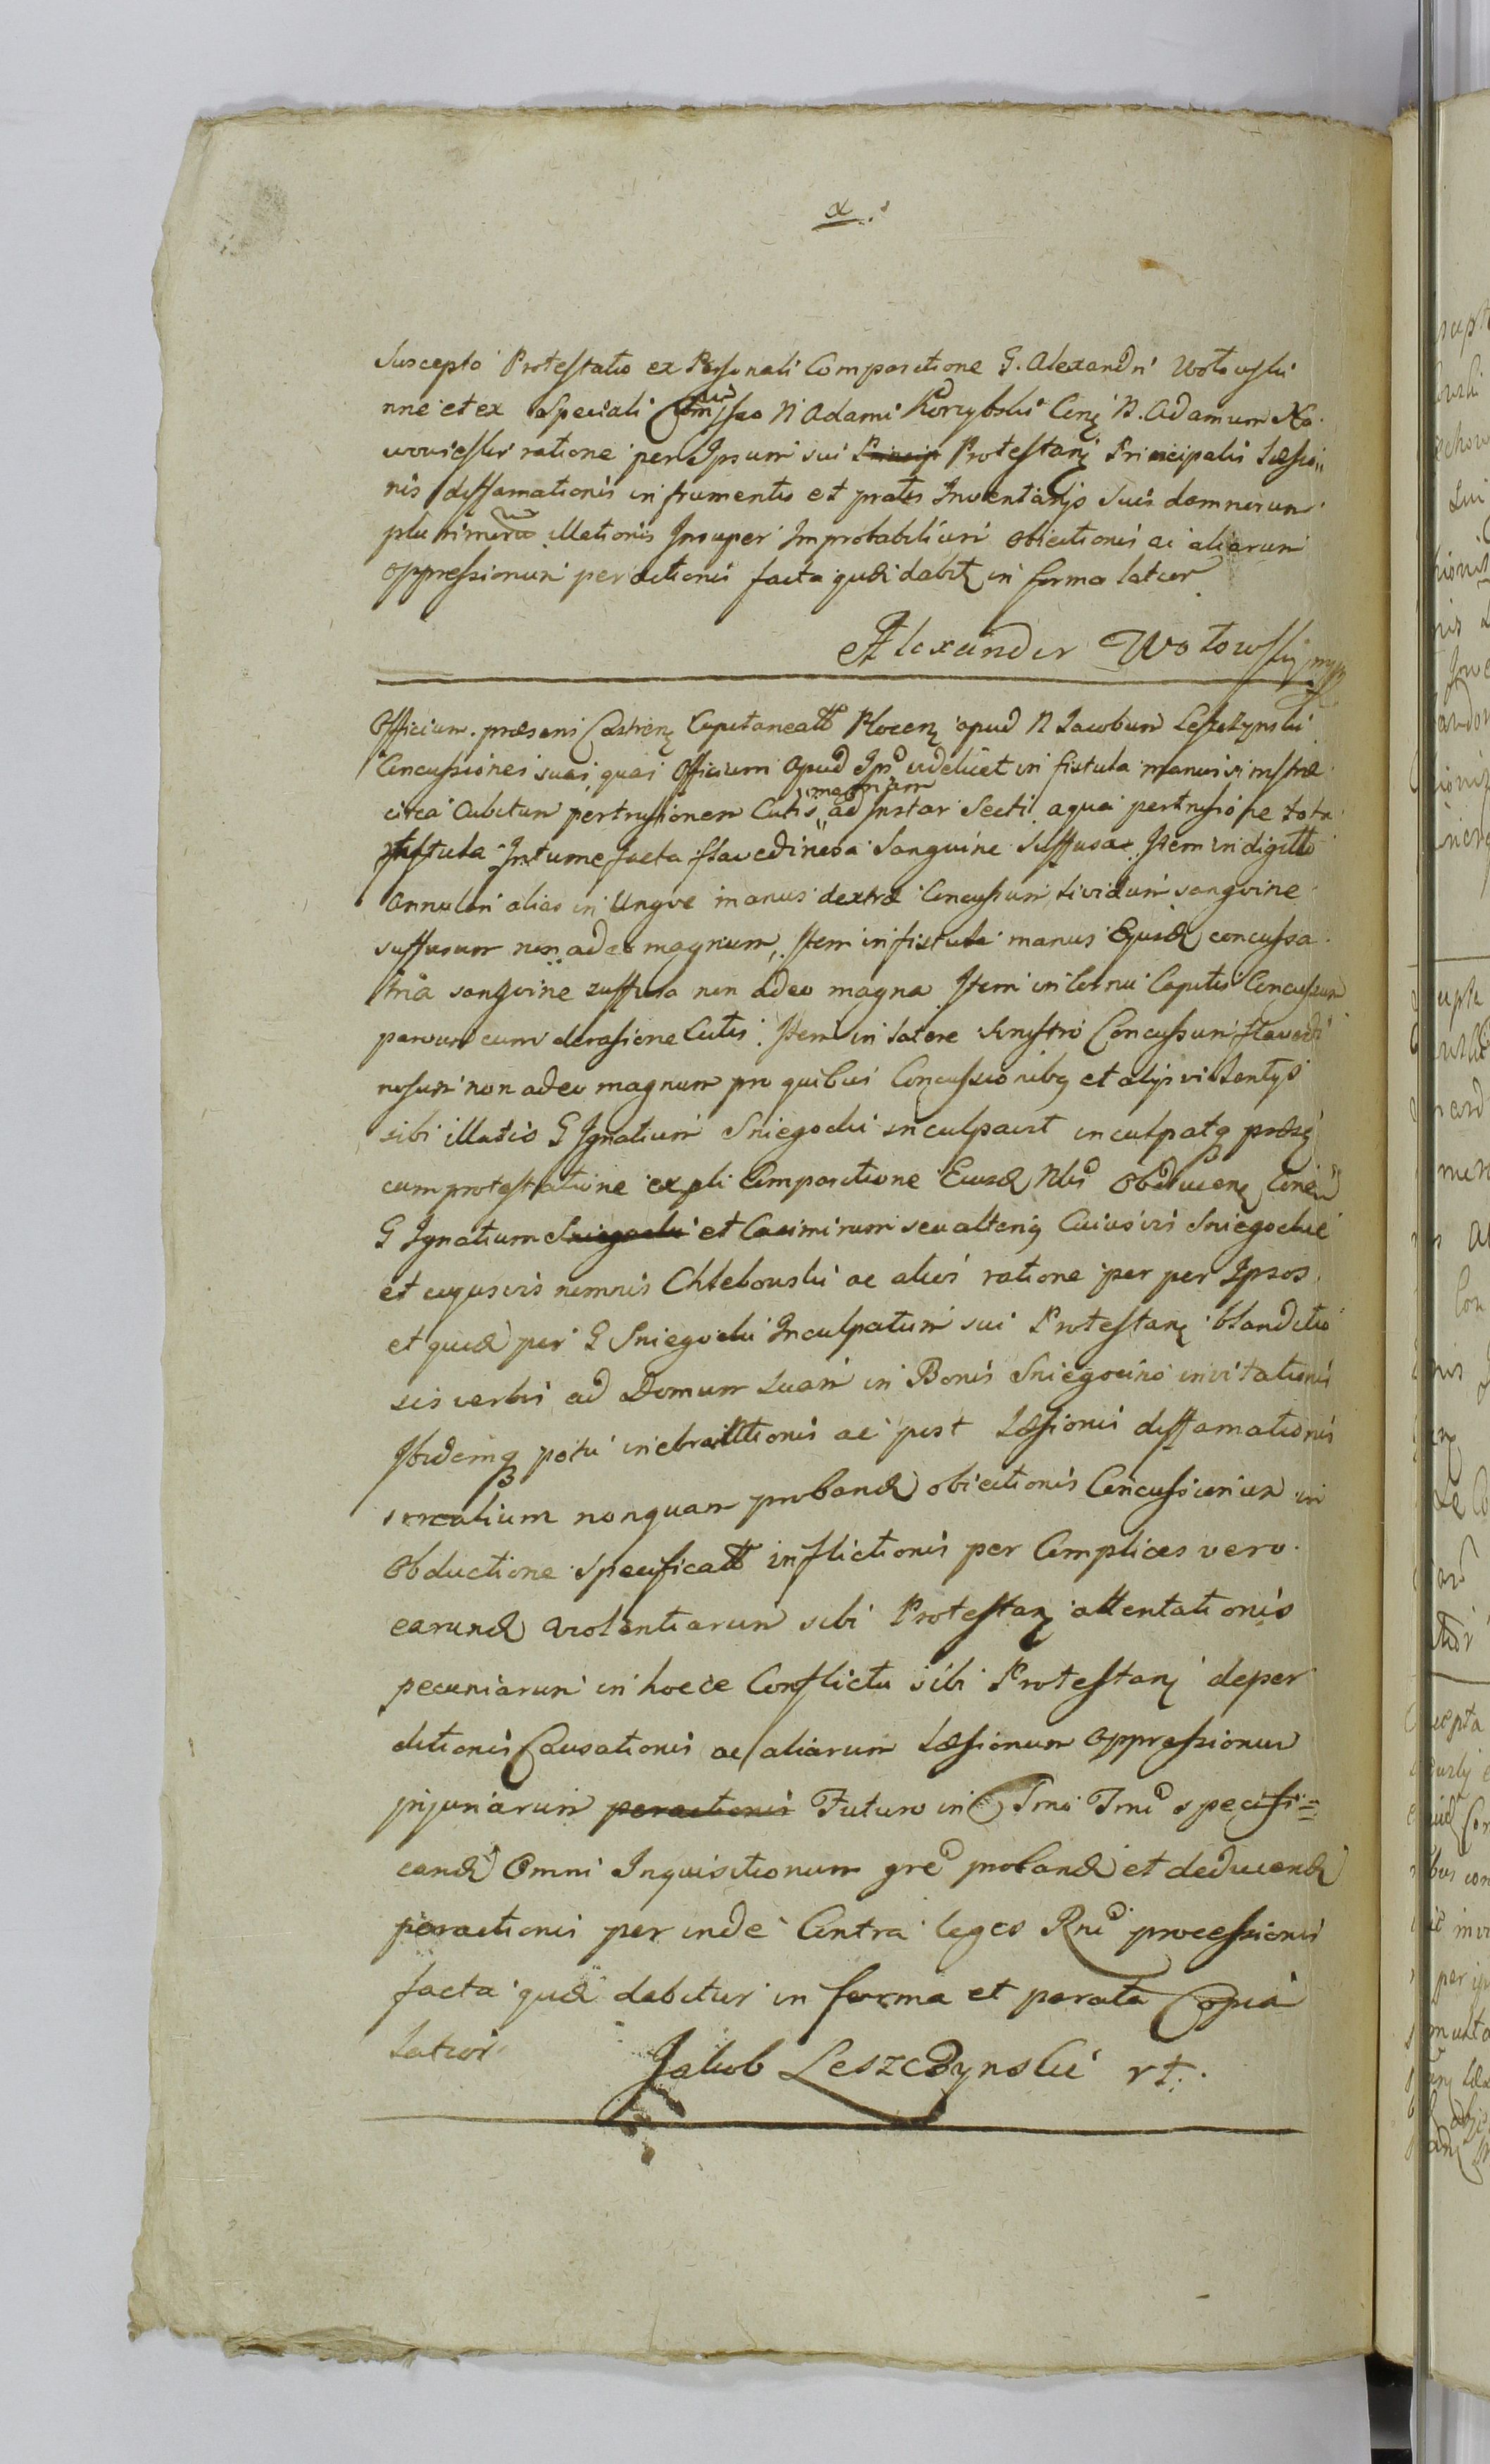 Suscepta Protestatio ex Personali Comparitione G. Alexandri Wołowski
nne et ex Speciali N Adami Korzybski Con N. Adamum No
wowieski ratione per Ipsum sui Princip Protestan Principalis Læsio„
nis diffamationis in frumentis et pratis Inventarijs Suis damnorum
plurimorum illationis Insuper Improbabilium obiectionis ac aliarum
oppressionum peractionis facta quæ dabit in forma latior
Alexander Wołowski mp
Officium præsens Castren Capitaneatt Plocen apud N Jacobum Leszczynski
Concussiones suas quas Officium apud Ips videlicet in fistula manus sinistræ
magnam
circa Cubitum pertrusionem Cutis „ ad Instar Secti aqua pertrusione tota
fistula Intumefacta flavedinosa Sanguine Suffusa Item in digitto
Annulari alias in Ungve manus dextræ Concussum lividum sangvine
suffusum non adeo magnum, Item in fistula manus Ejusd concussa
sangvine suffusa non adeo magna Item in Cornu Capitis Concussum
parvum cum derasione Cutis. Item in latere Sinistro Concussum flavedi
nosum non adeo magnum pro quibus Concussionibq et alijs violentijs
sibi illatis G Ignatium Sniegocki inculpavit inculpatq præs
cum protestatione ex pli Comparitione Eiusd Nlis Obducen Con
G Ignatium Sniegocki et Casimirum seu alteriq Cuiusvis Sniegockie
et cujusvis nominis Chlebowski ac alios ratione per per Ipsos
et quid per G Sniegocki Inculpatum sui Protestan blanditio
sis verbis ad Domum Suam in Bonis Sniegocino invitationis
Ibidemq potu inebriattionis ac post Læsionis diffamationis
nonquam proband obiectionis Concussionum in
Obductione Specificatt inflictionis per Complices vero
earund violentiarum sibi Protestan attentationis
pecuniarum in hocce Conflictu sibi Protestan deper
ditionis Causationis ac aliarum Læsionum oppressionum
injuriarum peractionis Futuro in Trno Trni specifi=
cand Omni Inquisitionum gre proband et deducend
peractionis per inde Contra leges Rni processionis
facta quæ dabitur in forma et parata Copia
latior
Jakob Leszczynski rt.